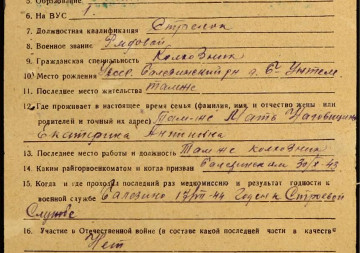 5. Образование
6. На ВУС 1
7. Должностная квалификация Стрелок
8. Военное звание Рядовой
9. Гражданская специальность Колхозник
10. Место рождения Балезинский р-н д.
11. Последнее место жительства там-же
12. Где проживает в настоящее время семья (фамилия, имя, и отчество жены или
родителей и точный их адрес) Там-же Мать
Екатерина Антиповна
13. Последнее место работы и должность Там-же колхозник
14. Каким райгорвоенкоматом и когда призван Балезинским 30/X-43
15. Когда и где проходил последний раз медкомиссию и результат годности к
военной службе Балезино 44 Годен к Строевой
Службе
16. Участие в Отечественной войне (в составе какой последней части в качестве
Нет